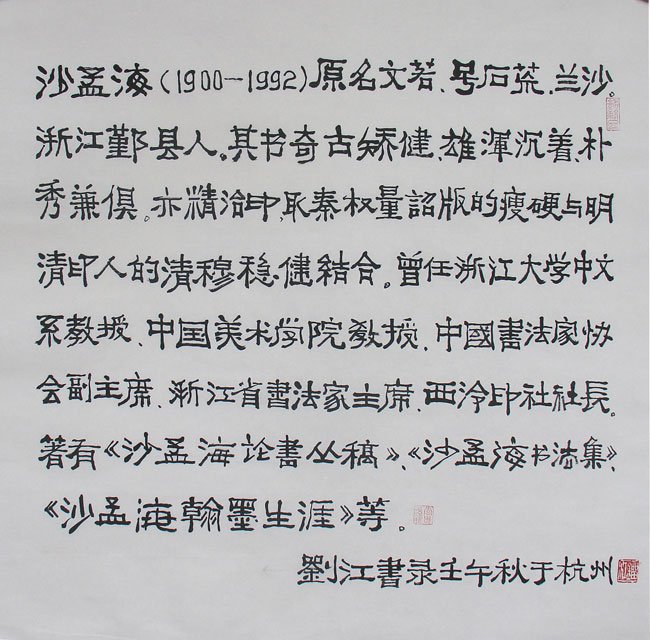 沙孟海(1900—1992)原名文若、号石荒、兰沙。
浙江鄞县人。其书奇古矫健、雄渾沉着、朴
秀兼俱。亦精治印、取秦权量詔版的瘦硬与明
清印人的清穆稳健結合。曾任浙江大学中文
系教授、中国美术学院教授、中國書法家协
会副主席、浙江省書法家主席、西泠印社社長。
著有《沙孟海论書丛稿》、《沙孟海书法集》、
《沙孟海翰墨生涯》等。
劉江書录壬午秋于杭州